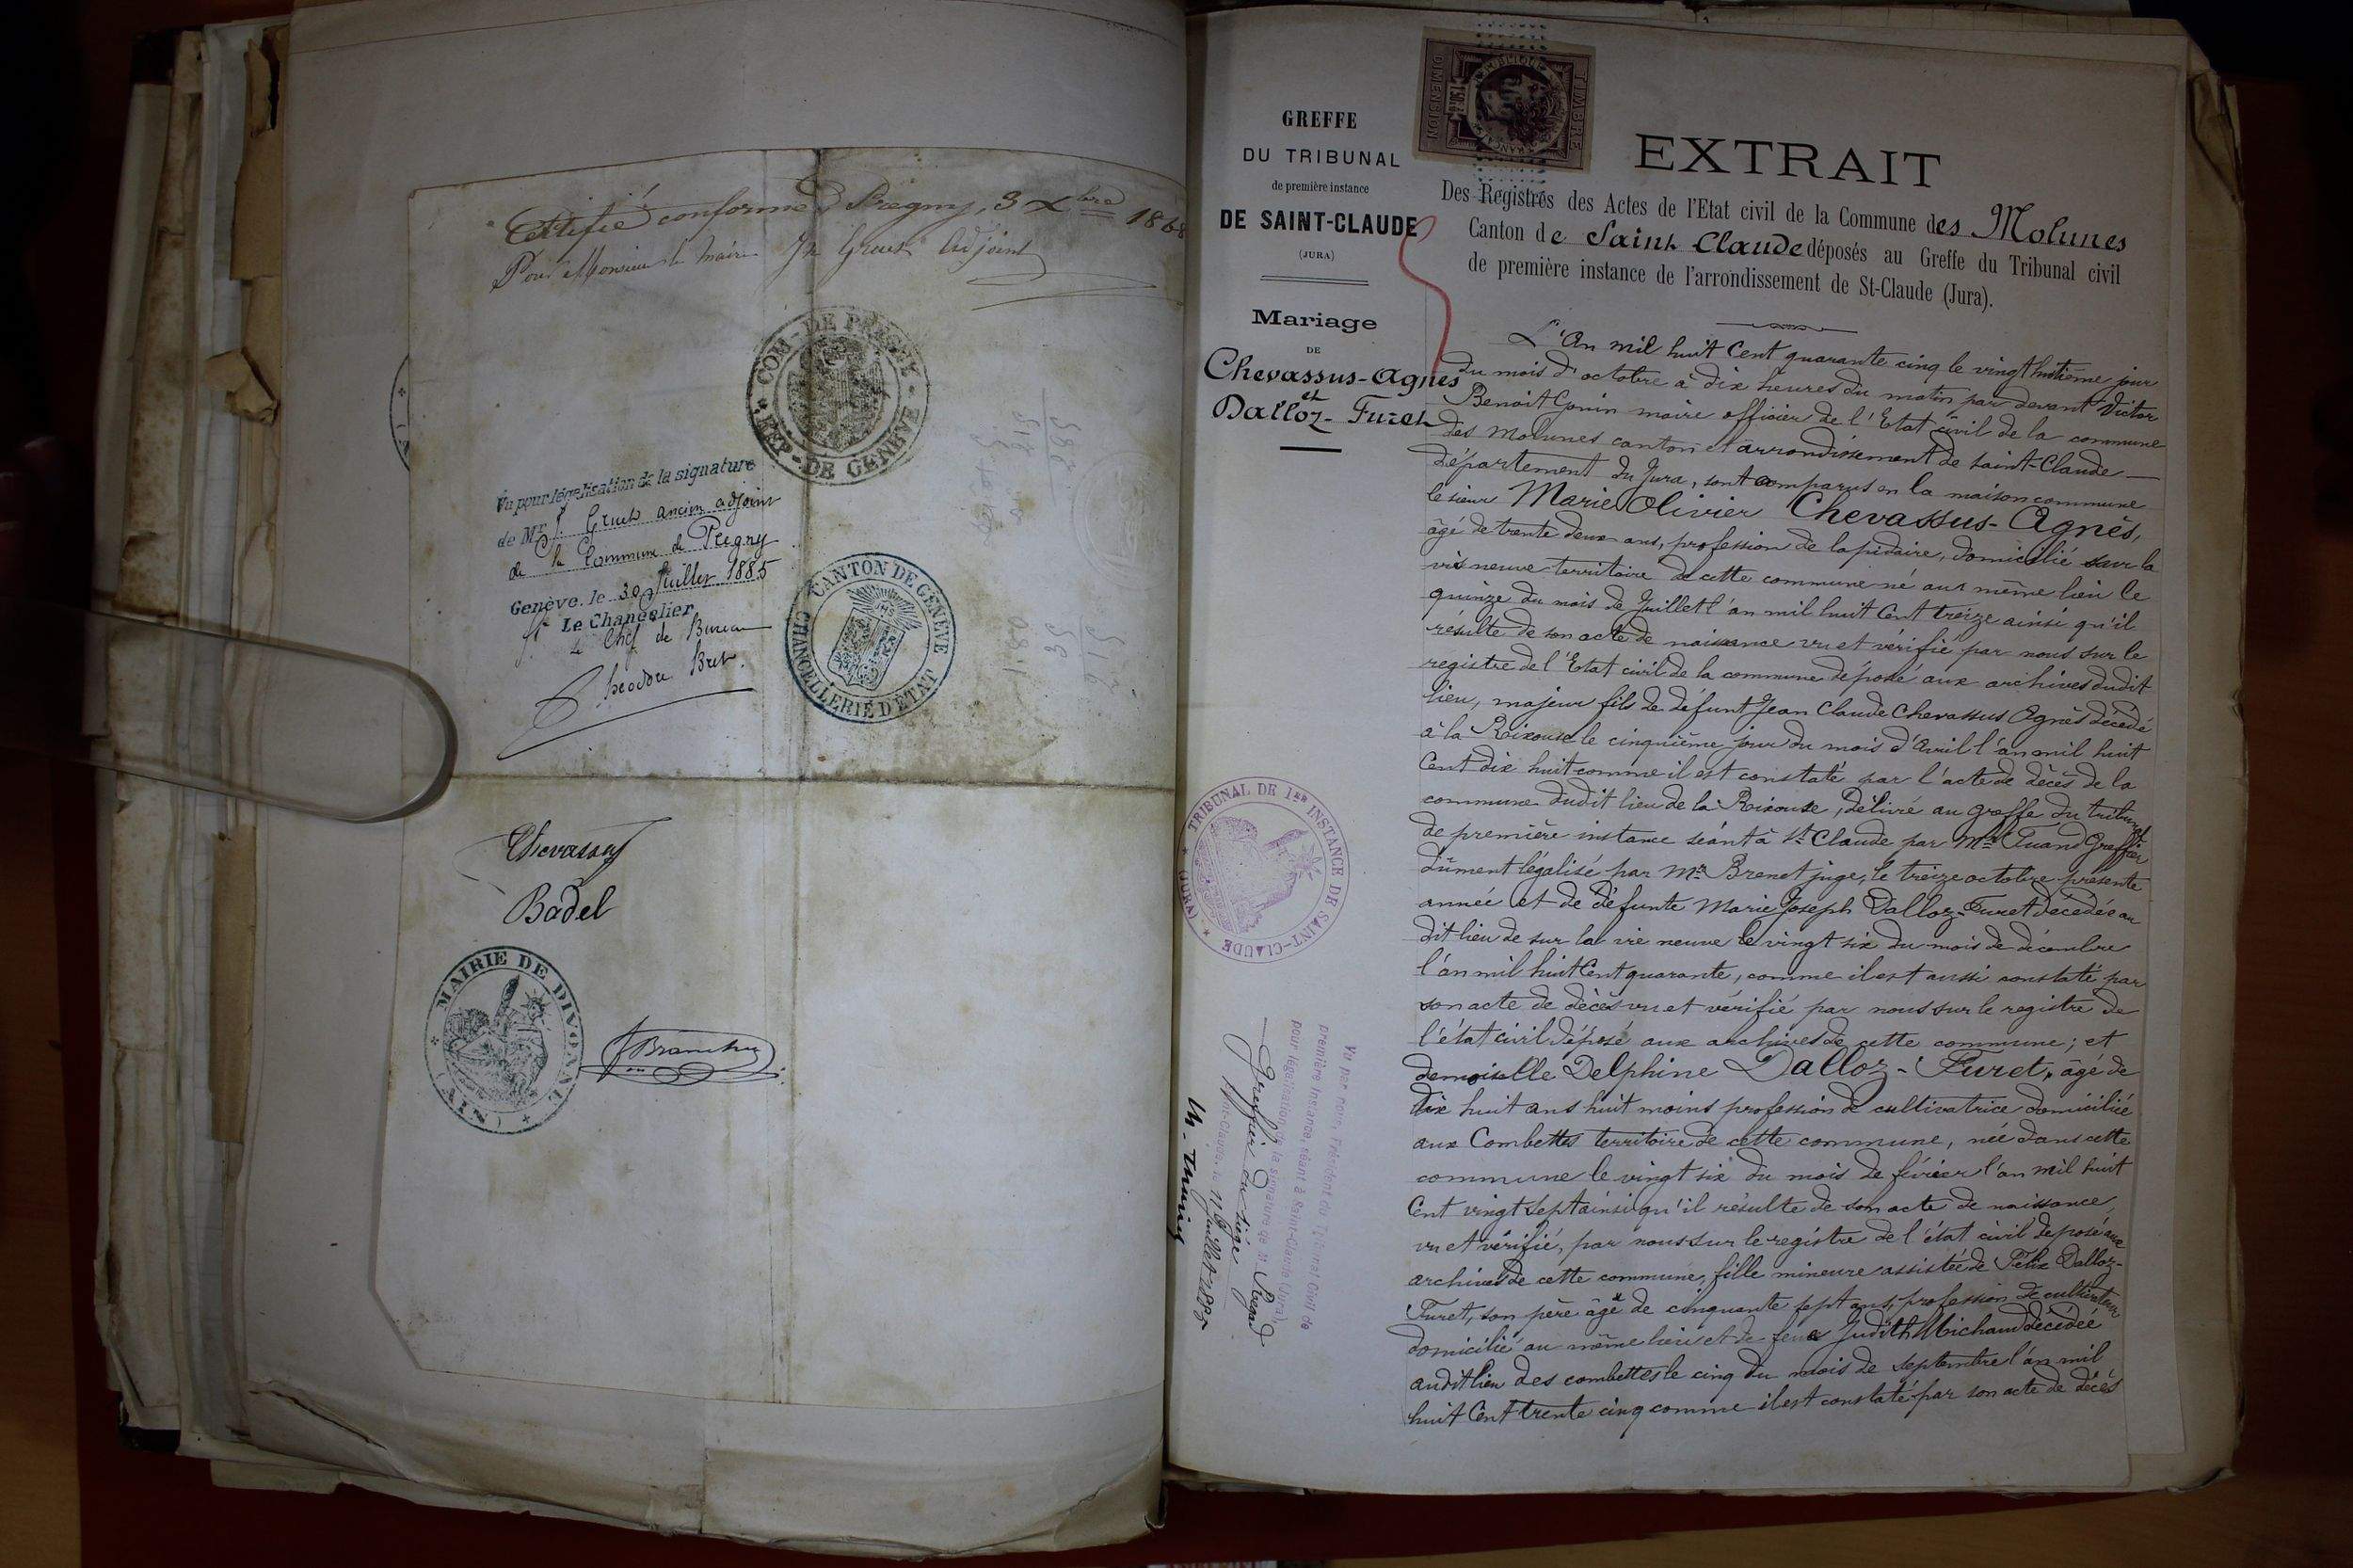 Certifié conforme, Pregny, 3 Xbre 1868
Pour Monsieur le Maire Adjoint
COM - DE PREGNY - REP - DE GENEVE
Vu pour légalisation de la signature
de Mr J. Gruet ancien adjoint
de la Commune de Pregny
Genève. le 30 Juillet 1885
Le Chancelier
Le Chef de Bureau
Théodore Bret.
CANTON DE GENEVE
CHANCELLERIE D'ETAT
Chevassus
Badel
MAIRIE DE DIVONNE
(AIN)
GREFFE
DU TRIBUNAL
de première instance
DE SAINT-CLAUDE
(JURA)
Mariage
DE
Chevassus-Agnès
et
Dalloz-Furet
TRIBUNAL DE 1re INSTANCE DE SAINT-CLAUDE
(JURA)
Vu par nous, Président du Tribunal Civil de
première instance, séant à Saint-Claude (Jura),
pour légalisation de la signature de M. Regad
Greffier du siège
St-Claude, le 11 Juillet 1885
TIMBRE
DIMENSION
EXTRAIT
Des Registres des Actes de l'Etat civil de la Commune des Molunes
Canton de Saint Claude déposés au Greffe du Tribunal civil
de première instance de l'arrondissement de St-Claude (Jura).
L'An mil huit Cent quarante cinq le vingt huitième jour
du mois d'octobre à dix heures du matin par devant Victor
Benoit Gonin maire officier de l'Etat civil de la commune
des Molunes canton et arrondissement de Saint-Claude
Département du Jura, sont comparus en la maison commune
le sieur Marie Olivier Chevassus-Agnès,
âgé de trente deux ans, profession de lapidaire, domicilié sur la
vie neuve territoire de cette commune né au même lieu le
quinze du mois de Juillet l'an mil huit Cent treize ainsi qu'il
résulte de son acte de naissance vu et vérifié par nous sur le
registre de l'Etat civil de la commune déposé aux archives dudit
lieu, majeur fils de défunt Jean Claude Chevassus Agnès décédé
à la Rixouse le cinquième jour du mois d'avril l'an mil huit
Cent dix huit comme il est constaté par l'acte de décès de la
commune dudit lieu de la Rixouse, délivré au greffe du tribunal
de première instance séant à St Claude par Mr Greffier
dûment légalisé par Mr Brenet juge, le treize octobre présente
année et de défunte Marie Joseph Dalloz-Furet décédée au
dit lieu de sur la vie neuve le vingt six du mois de décembre
l'an mil huit Cent quarante, comme il est aussi constaté par
son acte de décès vu et vérifié par nous sur le registre de
l'état civil déposé aux archives de cette commune; et
demoiselle Delphine Dalloz-Furet, âgé de
dix huit ans huit moins profession de cultivatrice domiciliée
aux Combettes territoire de cette commune, née dans cette
commune le vingt six du mois de février l'an mil huit
Cent vingt sept ainsi qu'il résulte de son acte de naissance,
vu et vérifié, par nous sur le registre de l'état civil déposé aux
archives de cette commune, fille mineure assistée de Félix Dalloz-
Furet, son père âgé de cinquante sept ans, profession de cultivateur
domicilié au même lieu et de feue Judith Michaud décédée
audit lieu des combettes le cinq du mois de septembre l'an mil
huit Cent trente cinq comme il est constaté par son acte de décès